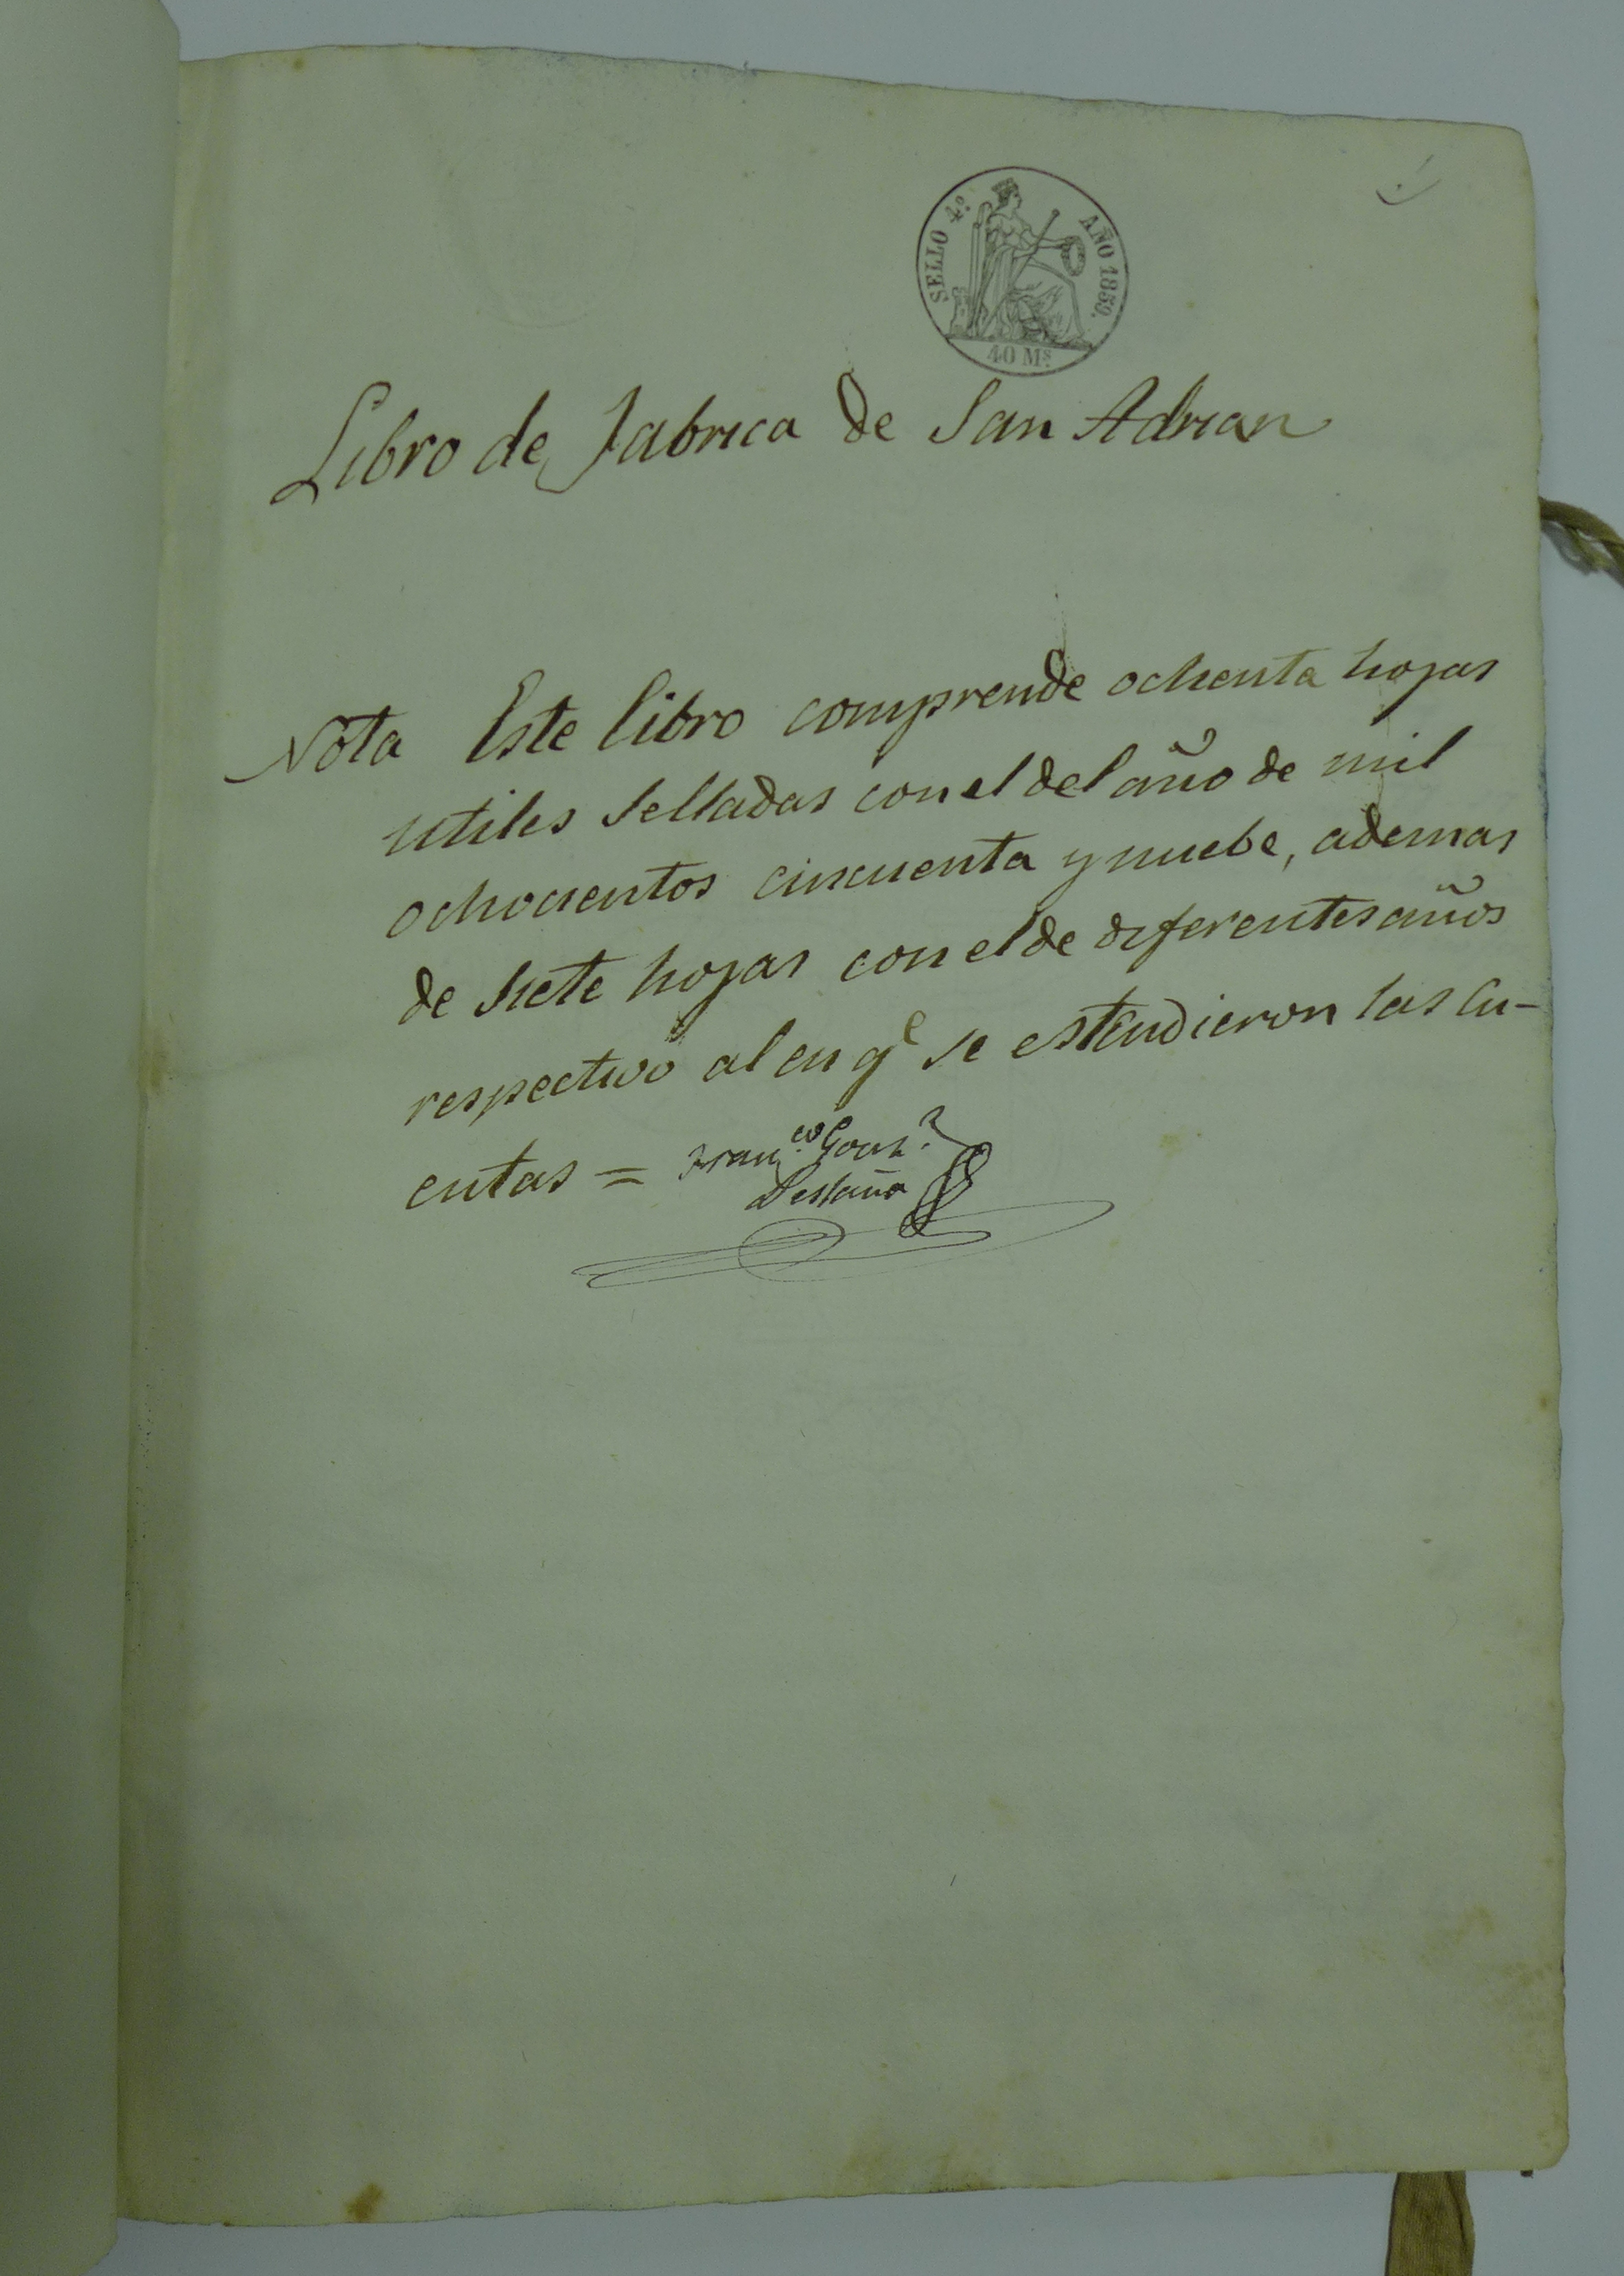 SELLO 4º. AÑO 1859.
40 Ms.
Libro de fabrica de San Adrian
Nota Este libro comprende ochenta hojas
utiles selladas con el del año de mil
ochocientos cincuenta y nuebe, ademas
de siete hojas con el de diferentes años
respectivo al en qe se estendieron las cu-
entas = Franco. Gonz